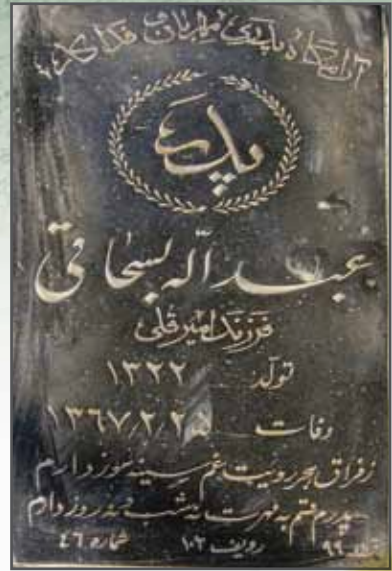 آرامگاه پدری مهربان و فداکار
پدر
عبداله بسحاقی
فرزند امیرقلی
تولد ۱۳۲۲
وفات ۱۳۶۷/۲/۲۵
زفراق مهر رویت غم سینه سوز دارم
پدرم قسم به مهرت نه شب و نه روز دارم
قطعه ۹۹ ردیف ۱۰۲ شماره ۴۶